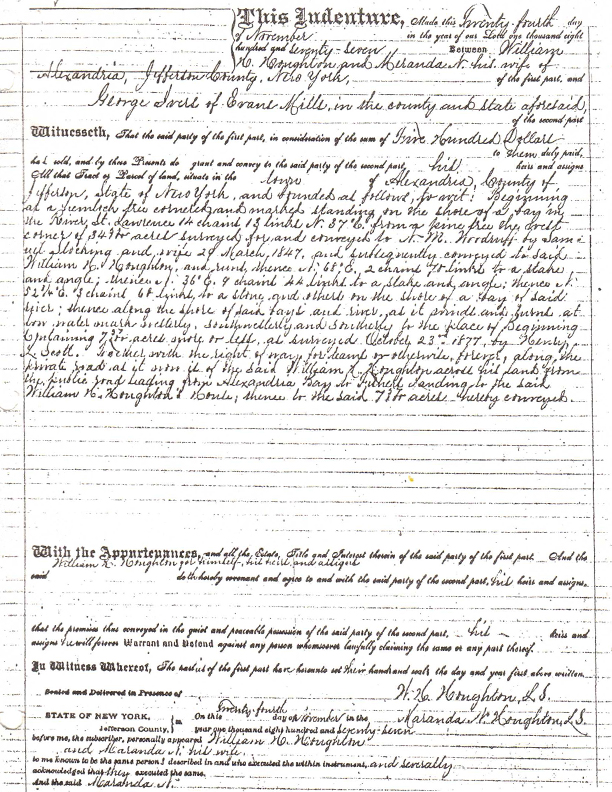 This Indenture, Made this Twenty-fourth day
of November in the year of our Lord one thousand eight
hundred and seventy-seven Between William
H. Houghton and Miranda N. his wife of
Alexandria, Jefferson County, New York, of the first part, and
George Ivers of Evans Mills, in the county and state aforesaid,
of the second part
Witnesseth, That the said party of the first part, in consideration of the sum of Five Hundred Dollars
to them duly paid,
ha sold, and by these Presents do grant and convey to the said party of the second part, his heirs and assigns
All that Tract or Parcel of land, situate in the town of Alexandria, County of
Jefferson, State of New York, and bounded as follows, to wit: Beginning
at a hemlock tree cornered and marked standing on the shore of a bay in
the River St. Lawrence 14 chains 13 links N. 37° E. from a pine tree the west
corner of acres surveyed for and conveyed to N. M. Woodruff by Sam-
uel Stocking and wife 29 March, 1847, and subsequently conveyed to said
William H. Houghton, and runs thence N. 68° E. 2 chains 70 links to a stake
and angle; thence N. 36° E. 9 chains 44 links to a stake and angle; thence N.
E. 3 chains 60 links to a stone and others on the shore of a bay of said
river; thence along the shore of said bays and river, as it winds and turns at
low water mark westerly, southwesterly and southerly to the place of beginning
Containing acres more or less, as surveyed October 23rd 1877, by Henry
L. Scott. Together with the right of way, for teams or otherwise, forever, along the
private road as it now is of the said William H. Houghton across his land from
the public road leading from Alexandria Bay to landing to the said
William H. Houghton's House; thence to the said acres hereby conveyed.
With the Appurtenances, and all the Estate, Title and Interest therein of the said party of the first part. And the
William H. Houghton for himself, his heirs and assigns
said doth hereby covenant and agree to and with the said party of the second part, his heirs and assigns
that the premises thus conveyed in the quiet and peaceable possession of the said party of the second part, his heirs and
assigns he will forever Warrant and Defend against any person whomsoever lawfully claiming the same or any part thereof.
In Witness Whereof, The parties of the first part have hereunto set their hands and seals the day and year first above written.
Sealed and Delivered in Presence of W. H. Houghton, L.S.
STATE OF NEW YORK, Jefferson County, } ss On this Twenty-fourth day of November in the Maranda N. Houghton, L.S.
year one thousand eight hundred and seventy-seven
before me, the subscriber, personally appeared William H. Houghton
and Maranda N. his wife,
to me known to be the same persons described in and who executed the within instrument, and severally
acknowledged that they executed the same.
And the said Maranda N.